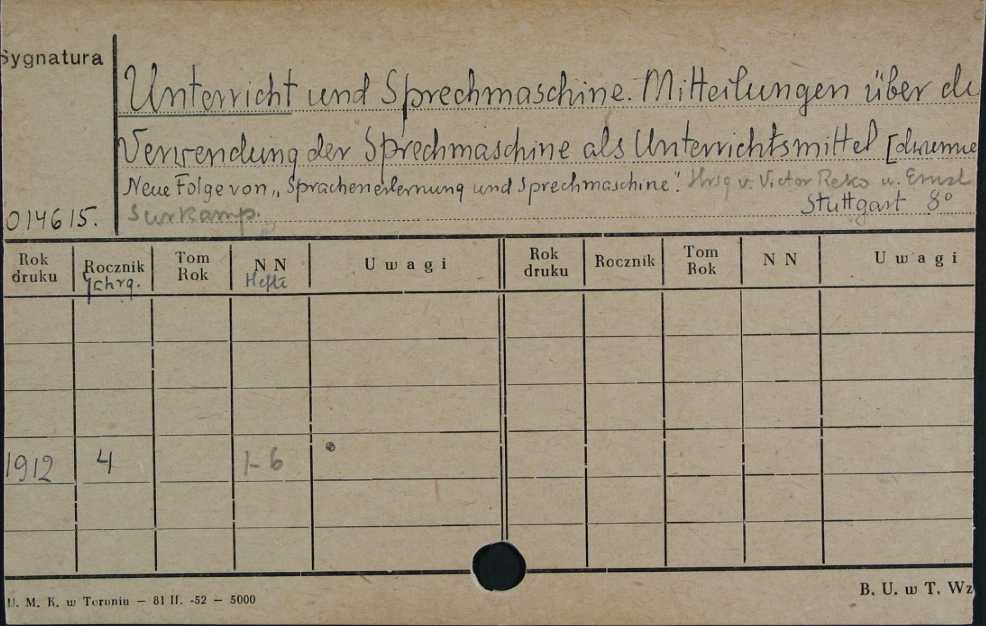 Sygnatura
Unterricht und Sprechmaschine. Mitteilungen über die
Verwendung der Sprechmaschine als Unterrichtsmittel
Neue Folge von „Sprachenerlernung und Sprechmaschine". Hrsg v. Victor Reko u. Ernst
Surkamp.
Stuttgart 8°
014615.
Rok druku Rocznik Tom Rok N N Uwagi Rok druku Rocznik Tom Rok N N Uwagi
Jchrg. Hefte
1912 4 1-6
U. M. K. w Toruniu — 81 II. -52 — 5000
B. U. w T. Wz